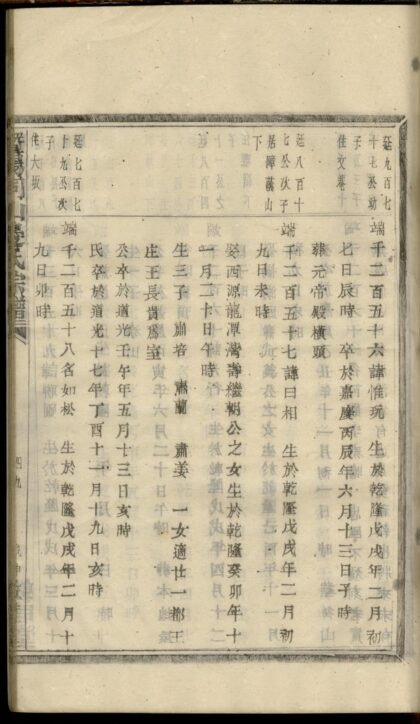 廷九百七
十七公幼
子
住文巷十
端千二百五十六諱惟玩 生於乾隆戊戌年二月初
七日辰時 卒於嘉慶丙辰年六月十三日子時
葬元帝殿橫頭
廷八百十
七公次子
居障蔴山
下
端千二百五十七諱曰相 生於乾隆戊戌年二月初
九日未時
娶西源龍潭灣諱繼朝公之女生於乾隆癸卯年十
一月二十日午時
生三子 肅音 肅蘭 肅姜 一女適廿一都王
庄王長貴爲室
公卒於道光壬午年五月十三日亥時
氏卒於道光十七年丁酉十一月十九日亥時
廷七百七
十九公次
子
住大坂
端千二百五十八名如松 生於乾隆戊戌年二月十
九日卯時